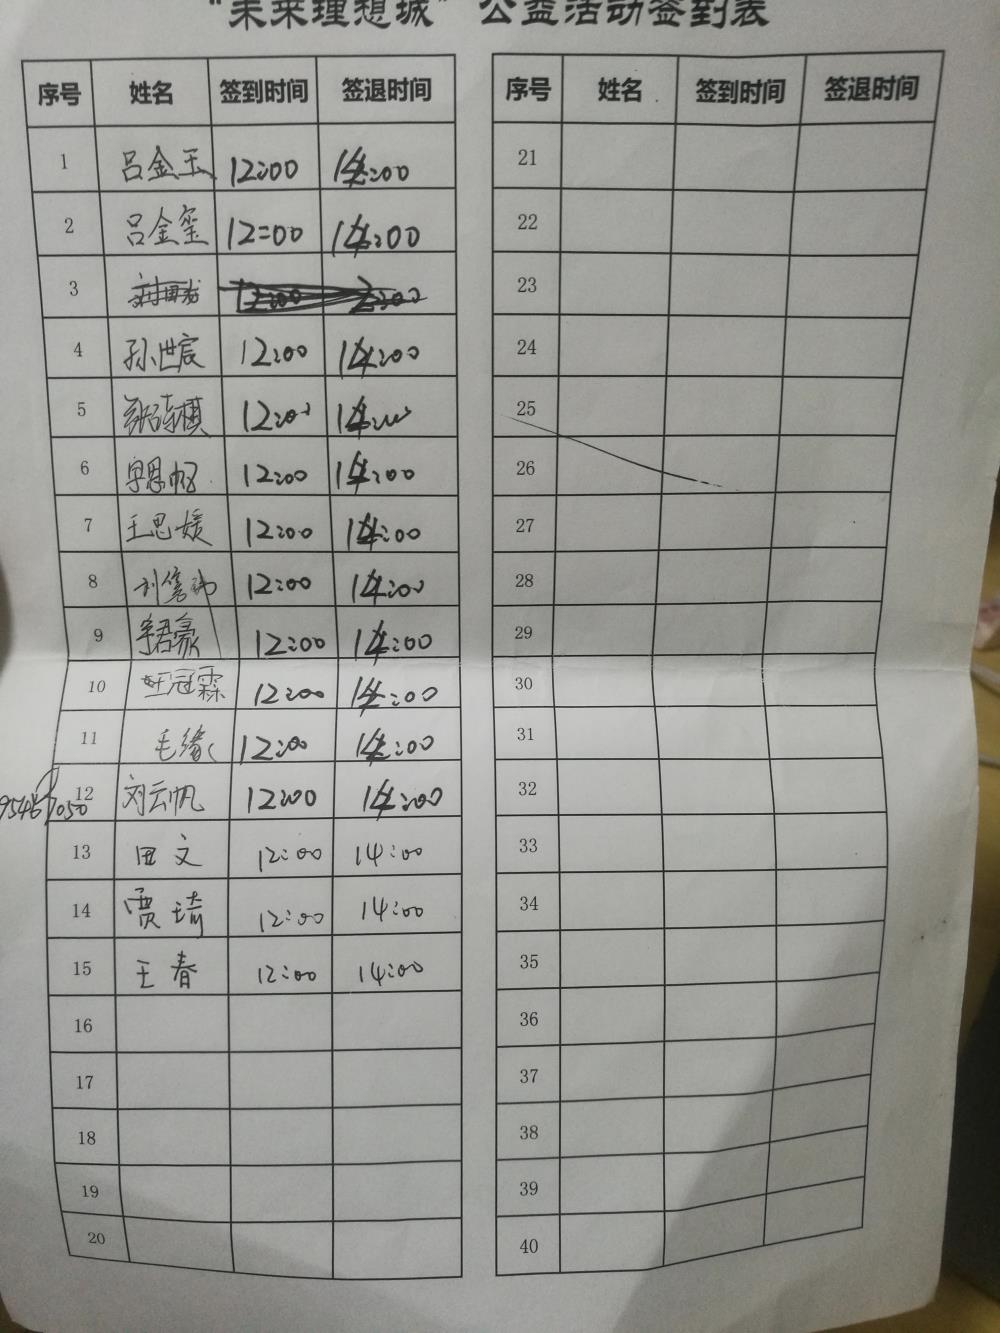 “未来理想城”公益活动签到表
序号 姓名 签到时间 签退时间
1 吕金玉 12:00 14:00
2 吕金玺 12:00 14:00
3
4 孙世宸 12:00 14:00
5 12:00 14:00
6 12:00 14:00
7 王思媛 12:00 14:00
8 12:00 14:00
9 李君豪 12:00 14:00
10 王冠霖 12:00 14:00
11 毛缘 12:00 14:00
12 刘云帆 12:00 14:00
13 田文 12:00 14:00
14 贾琦 12:00 14:00
15 王春 12:00 14:00
16
17
18
19
20
序号 姓名 签到时间 签退时间
21
22
23
24
25
26
27
28
29
30
31
32
33
34
35
36
37
38
39
40